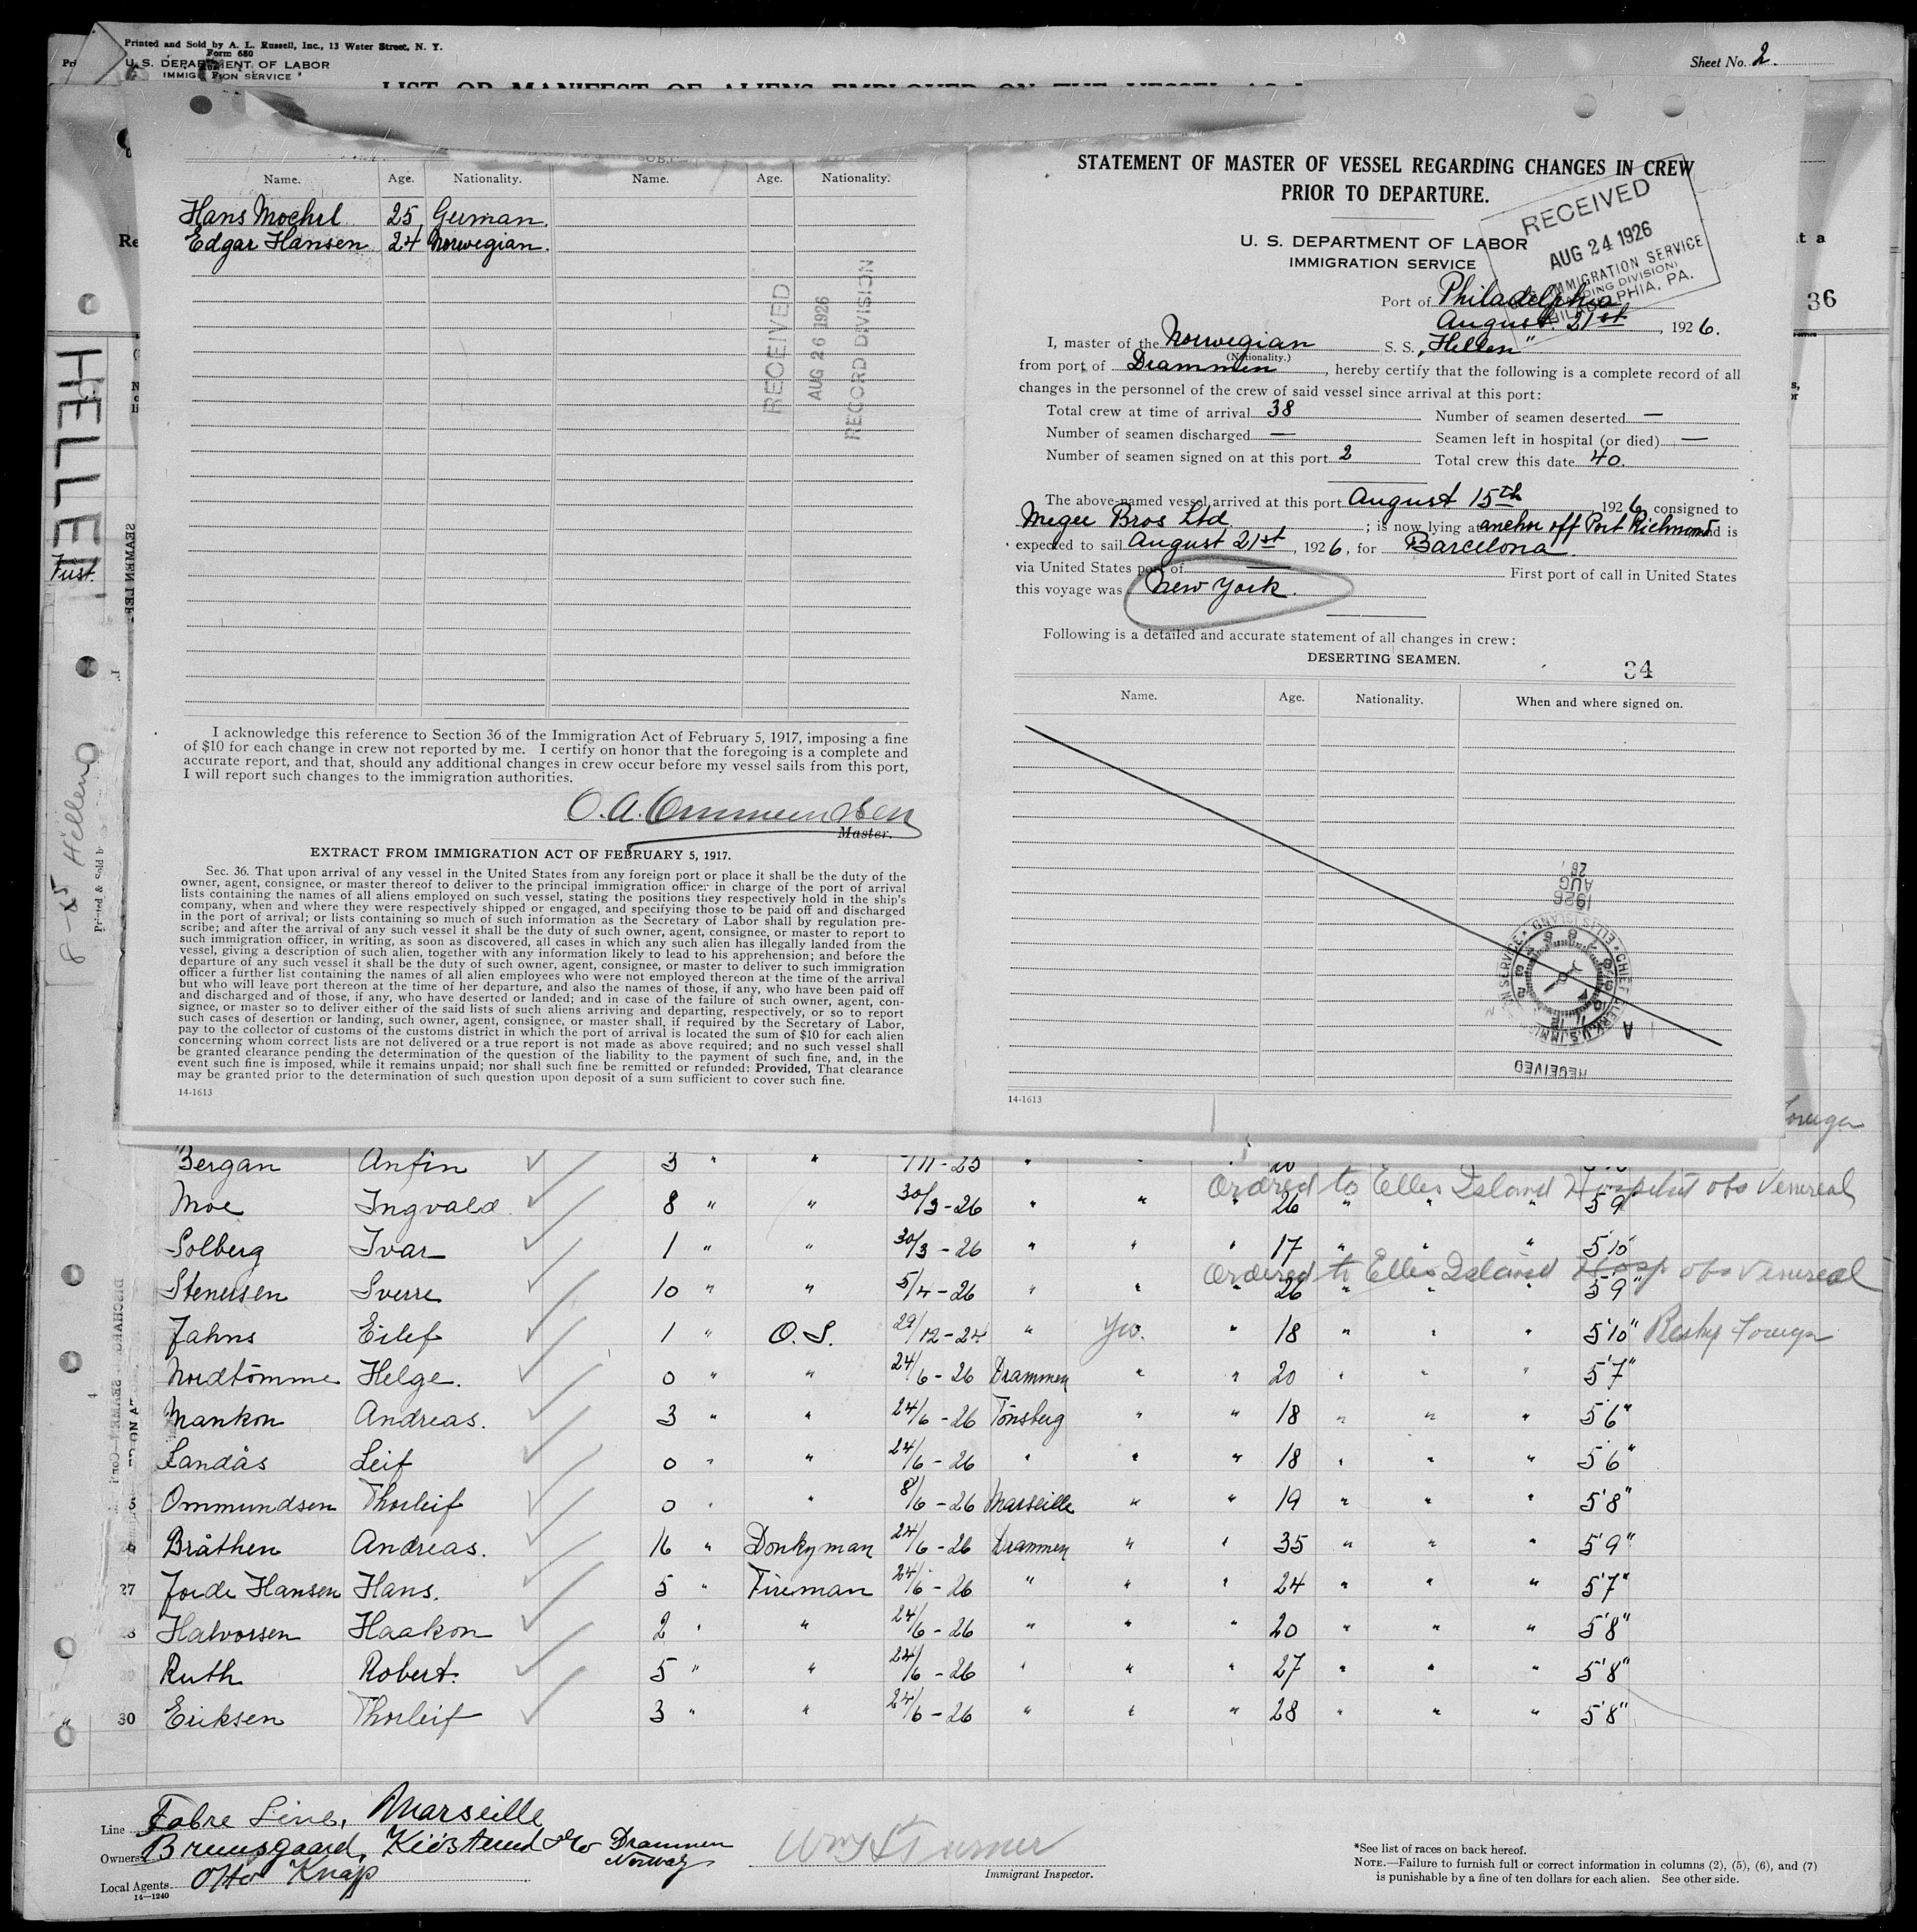 Printed and Sold by A. L. Russell, Inc., 13 Water Street, N. Y.
Form 680
U. S. DEPARTMENT OF LABOR
IMMIGRATION SERVICE
Sheet No. 2.
LIST OR MANIFEST OF ALIENS EMPLOYED ON THE VESSEL AS
Name. Age. Nationality. Name. Age. Nationality.
Hans Moehrl 25 German.
Edgar Hansen 24 Norwegian.
RECEIVED
AUG 26 1926
RECORD DIVISION
I acknowledge this reference to Section 36 of the Immigration Act of February 5, 1917, imposing a fine
of $10 for each change in crew not reported by me. I certify on honor that the foregoing is a complete and
accurate report, and that, should any additional changes in crew occur before my vessel sails from this port,
I will report such changes to the immigration authorities.
O. A. Ommundsen
Master.
EXTRACT FROM IMMIGRATION ACT OF FEBRUARY 5, 1917.
Sec. 36. That upon arrival of any vessel in the United States from any foreign port or place it shall be the duty of the
owner, agent, consignee, or master thereof to deliver to the principal immigration officer in charge of the port of arrival
lists containing the names of all aliens employed on such vessel, stating the positions they respectively hold in the ship's
company, when and where they were respectively shipped or engaged, and specifying those to be paid off and discharged
in the port of arrival; or lists containing so much of such information as the Secretary of Labor shall by regulation pre-
scribe; and after the arrival of any such vessel it shall be the duty of such owner, agent, consignee, or master to report to
such immigration officer, in writing, as soon as discovered, all cases in which any such alien has illegally landed from the
vessel, giving a description of such alien, together with any information likely to lead to his apprehension; and before the
departure of any such vessel it shall be the duty of such owner, agent, consignee, or master to deliver to such immigration
officer a further list containing the names of all alien employees who were not employed thereon at the time of the arrival
but who will leave port thereon at the time of her departure, and also the names of those, if any, who have been paid off
and discharged and of those, if any, who have deserted or landed; and in case of the failure of such owner, agent, con-
signee, or master so to deliver either of the said lists of such aliens arriving and departing, respectively, or so to report
such cases of desertion or landing, such owner, agent, consignee, or master shall, if required by the Secretary of Labor,
pay to the collector of customs of the customs district in which the port of arrival is located the sum of $10 for each alien
concerning whom correct lists are not delivered or a true report is not made as above required; and no such vessel shall
be granted clearance pending the determination of the question of the liability to the payment of such fine, and, in the
event such fine is imposed, while it remains unpaid; nor shall such fine be remitted or refunded: Provided, That clearance
may be granted prior to the determination of such question upon deposit of a sum sufficient to cover such fine.
14-1613
STATEMENT OF MASTER OF VESSEL REGARDING CHANGES IN CREW
PRIOR TO DEPARTURE.
RECEIVED
AUG 24 1926
IMMIGRATION SERVICE
PHILADELPHIA, PA.
U. S. DEPARTMENT OF LABOR
IMMIGRATION SERVICE
Port of Philadelphia
August 21st, 1926.
36
I, master of the Norwegian S. S. „Hellen"
(Nationality.)
from port of Drammen, hereby certify that the following is a complete record of all
changes in the personnel of the crew of said vessel since arrival at this port:
Total crew at time of arrival 38 Number of seamen deserted —
Number of seamen discharged — Seamen left in hospital (or died) —
Number of seamen signed on at this port 2 Total crew this date 40.
The above-named vessel arrived at this port August 15th 1926, consigned to
Megee Bros Ltd; is now lying at anchor off Port Richmond and is
expected to sail August 21st, 1926, for Barcelona.
via United States port of — First port of call in United States
this voyage was New York.
Following is a detailed and accurate statement of all changes in crew:
DESERTING SEAMEN.
34
Name. Age. Nationality. When and where signed on.
1926
AUG
26
CHIEF CLERK U.S. IMMIGRATION SERVICE ELLIS ISLAND
RECEIVED
14-1613
HELLEN
First.
8-25 Hellen
Foreign
Bergan Anfin 3 " " "
Ordered to Ellis Island Hospital obs Venereal
Moe Ingvald 8 " " 30/3-26 " " " 26 " " " 5'9
Solberg Ivar 1 " " 30/3-26 " " " 17 " " " 5'10
Ordered to Ellis Island Hosp obs Venereal
Stenersen Sverre 10 " " 5/4-26 " " " 26 " " " 5'9"
Jahns Eilef 1 " O. S. 29/12-24 " Yes. " 18 " " " 5'10" Reship Foreign
Nordtömme Helge. 0 " " 24/6-26 Drammen " " 20 " " " 5'7"
Mankon Andreas. 3 " " 24/6-26 Tönsberg " " 18 " " " 5'6"
Landås Leif 0 " " 24/6-26 " " " 18 " " " 5'6"
Ommundsen Thorleif 0 " " 8/6-26 Marseille " " 19 " " " 5'8"
Bråthen Andreas. 16 " Donkyman 24/6-26 Drammen " " 35 " " " 5'9"
27 Joide Hansen Hans. 5 " Fireman 24/6-26 " " " 24 " " " 5'7"
28 Halvorsen Haakon 2 " " 24/6-26 " " " 20 " " " 5'8"
Ruth Robert. 5 " " 24/6-26 " " " 27 " " " 5'8"
30 Eriksen Thorleif 3 " " 24/6-26 " " " 28 " " " 5'8"
Line Fabre Line, Marseille
Owners Bruusgaard, Kiösterud & Co Drammen Norway
Local Agents Otto Knap
14-1240
Wm S Turner
Immigrant Inspector.
*See list of races on back hereof.
NOTE.—Failure to furnish full or correct information in columns (2), (5), (6), and (7)
is punishable by a fine of ten dollars for each alien. See other side.